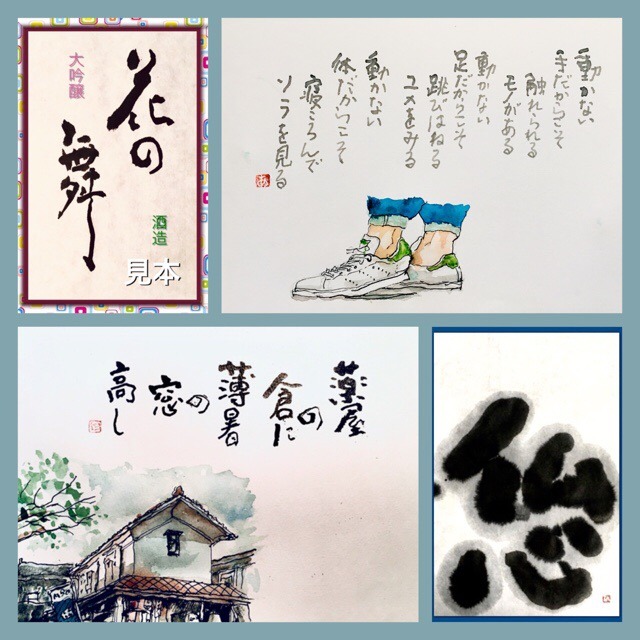 大吟醸
花の
舞
酒造
見本
動かない
手だからこそ
触れられる
モノがある
動かない
足だからこそ
跳びはねる
ユメをみる
動かない
体だからこそ
寝ころんで
ソラを見る
薬屋
の
倉に
薄暑
の
窓
高し